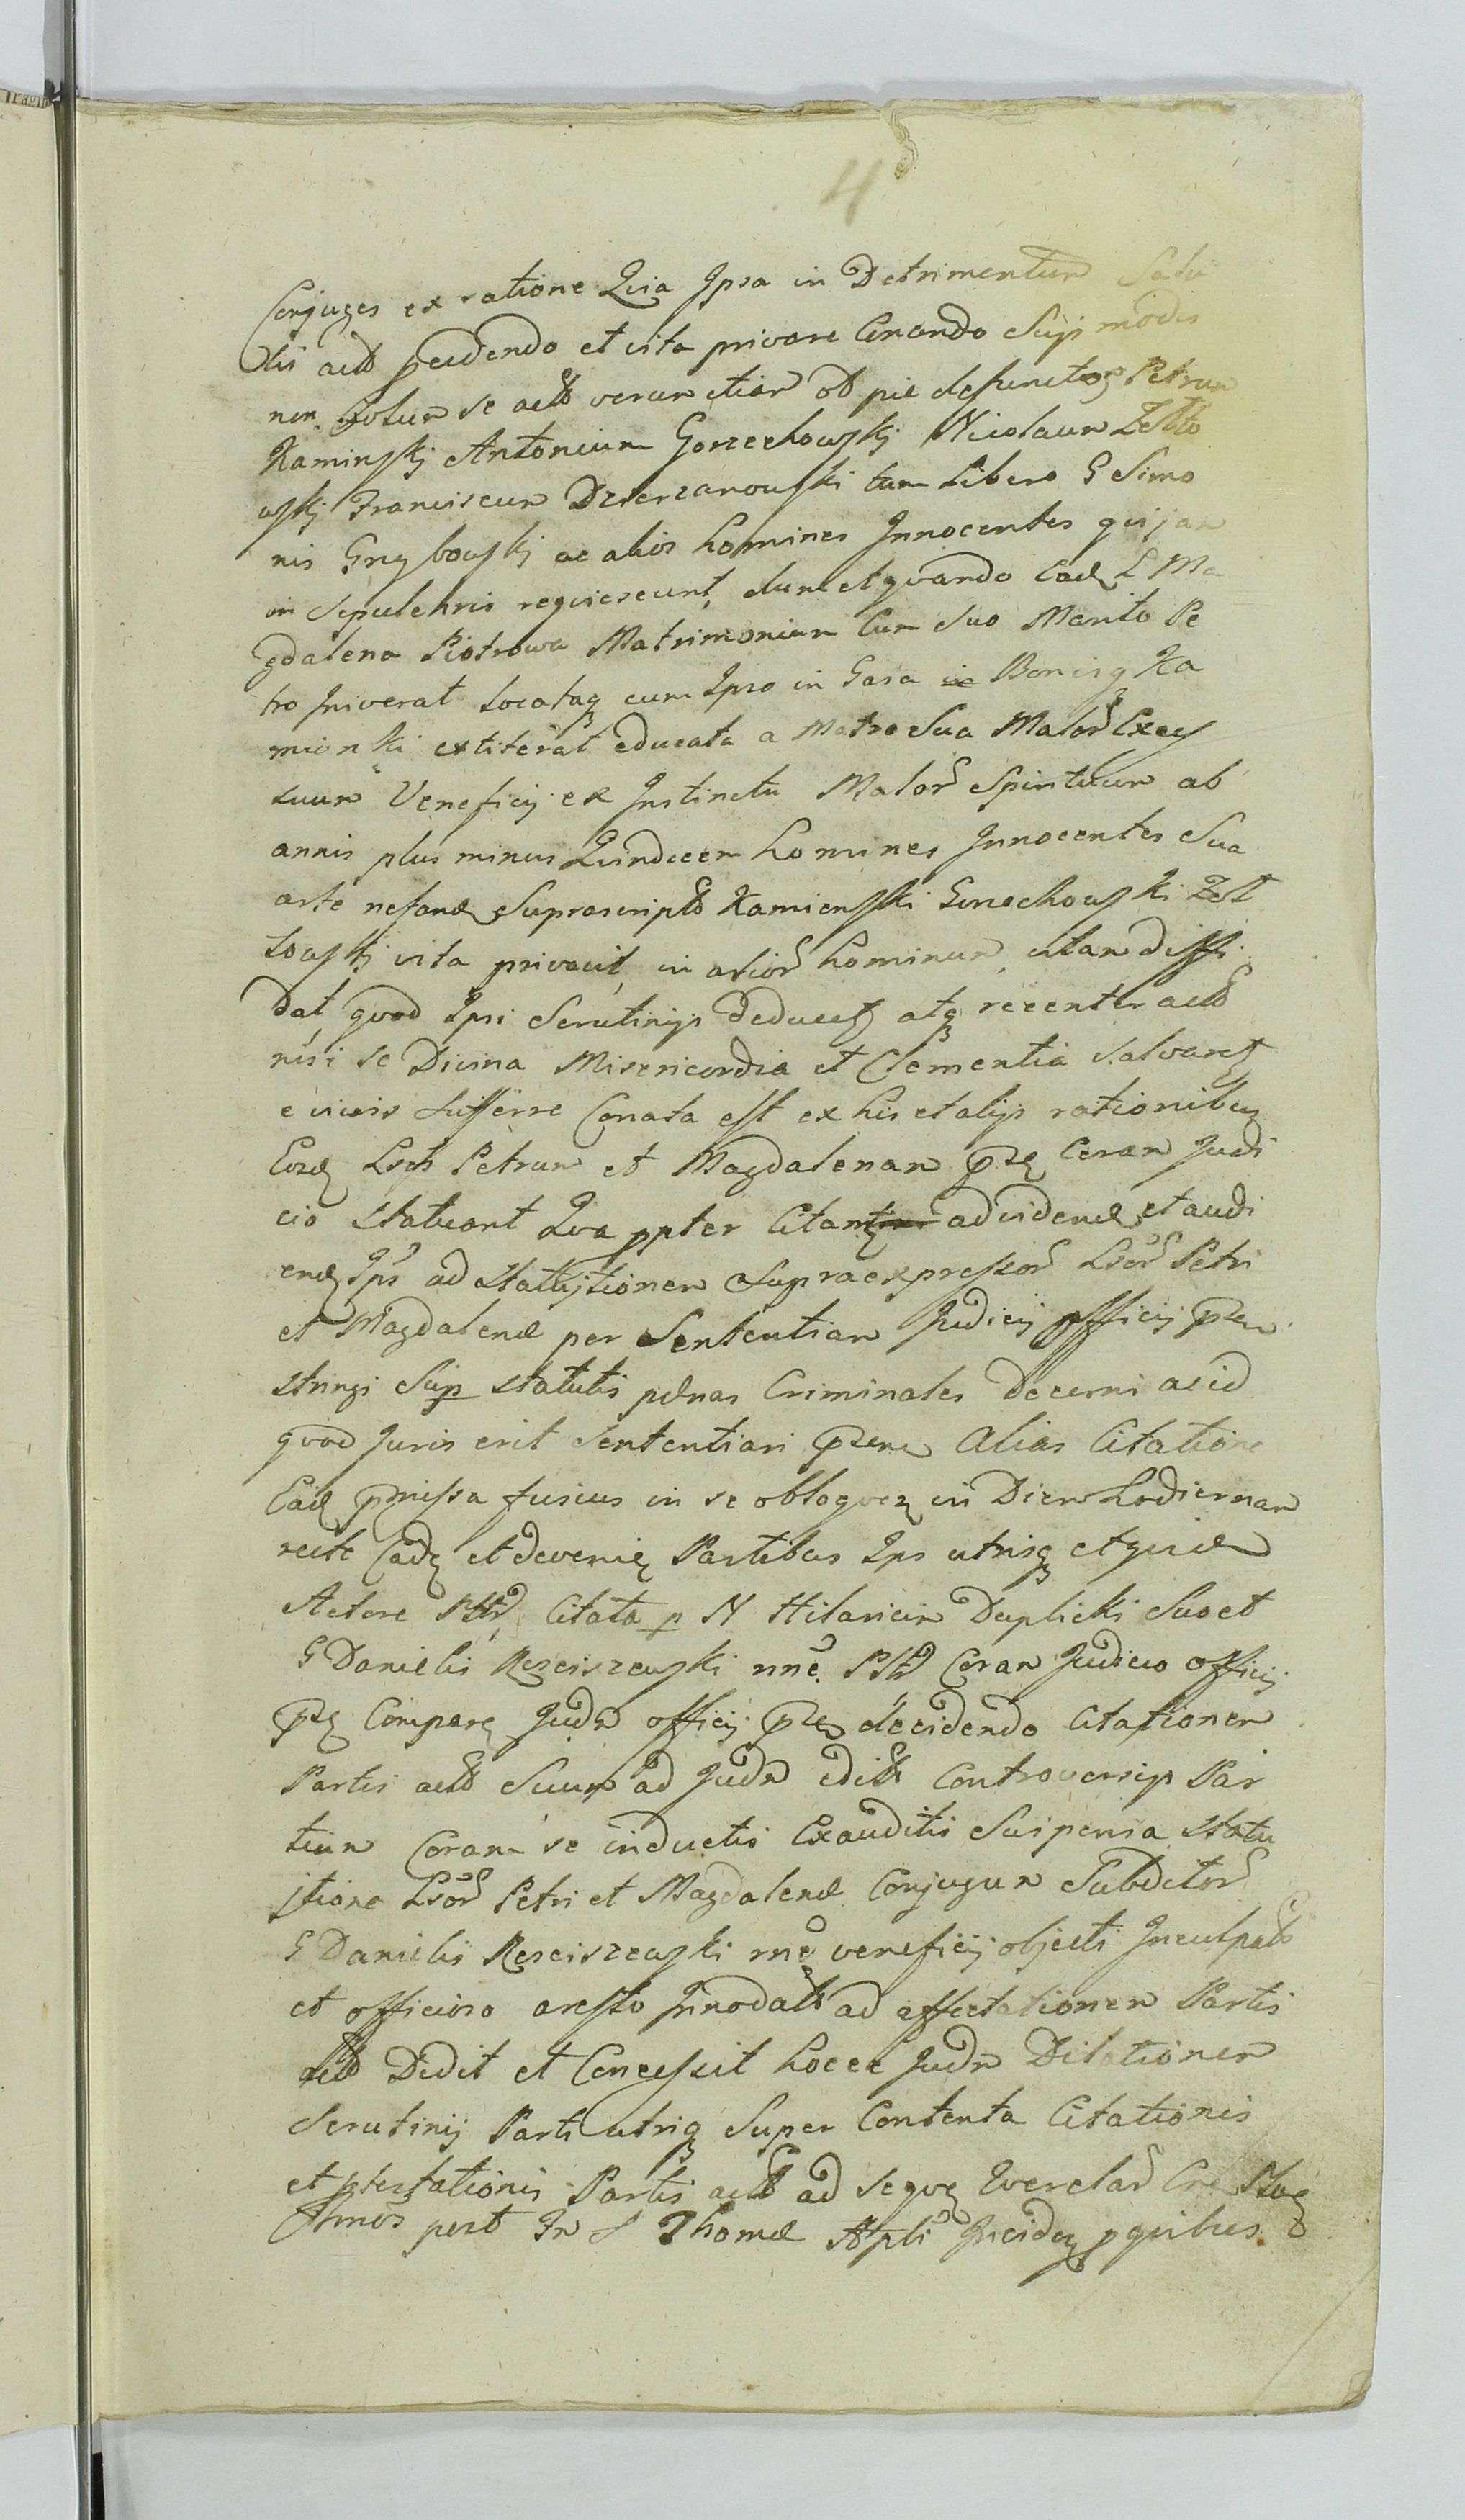 4
Conjuges ex ratione Quia Ipsa in Detrimentum Salu
tis actt perdendo et vita privare Conando Suis modis
non Solum se actt verum etiam ob pie defunctos Petrum
Kaminskj Antonium Gorzechowskj Nicolaum Zelto
wskj Franciscum Dzierzanowski tum Libero G Simo
nis Grzybowskj ac alios homines Innocentes qui jam
in Sepulchris requiescunt, dum et quando Ead L Ma
gdalena Piotrowa Matrimonium Cum Suo Marito Pe
tro Iniverat Locataq cum Ipso in Gasa Bonisq Ka
mionki extiterat educata a Matre Sua Malor Exer
suum Veneficij ex Instinctu Malor Spirituum ab
annis plus minus Quindecem homines Innocentes Sua
arte nefand Suprascriptt Kamienski Gorzechowski Zelt
towskj vita privavit, in alior hominum vitam diffi
dat, quod Ipsi Scrutinijs deducet atq recenter actt
nisi se Divina Misericordia et Clementia Salvaret
e vivis Sufferre Conata est ex his et alijs rationibus
Eosd Lsos Petrum et Magdalenam psz Coram Judi
cio statuant Qua ppter Citant ad vidend et audi
end Ips ad Statuitionem Supra expressor Lsor Petri
et Magdalenæ per Sententiam Judicij officij psen
stringi Sup statutis pænas Criminales decerni ac id
quod Juris erit Sententiari psens Alias Citatione
Ead pmissa fusius in se obloquen in Diem hodiernam
recte Cad et devenien Partibus Ips utrisq et quid
Actore Citata p N Hilarium Duplicki Suo et
G Danielis Rzeciszewski nne Coram Judicio officij
psz Comparen Judm officij psens decidendo Citationem
Partis actt Suum ad Judm editt Controversijs Par
tium Coram se inductis Exauditis Suspensa Statu
itione Lsor Petri et Magdalenæ Conjugum Subditor
G Danielis Rzeciszewski nne veneficij objecti Inculpatt
et officioso aresto Innodatt ad affectationem Partis
actt Dedit et Concessit hocce Judm Dilationem
Scrutinij Parti utriq Super Contenta Citationis
et ptestationis Partis actt ad sequen
post Fr S Thomæ Apli Inciden p quibus